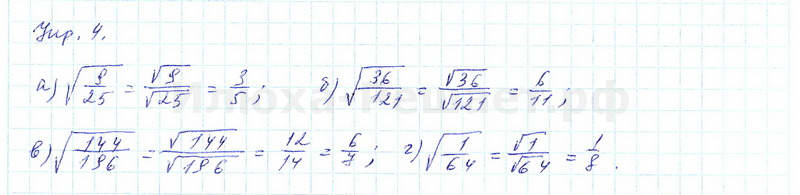 Упр. 4.
а) √(9/25) = √9/√25 = 3/5; б) √(36/121) = √36/√121 = 6/11;
в) √(144/196) = √144/√196 = 12/14 = 6/7; г) √(1/64) = √1/√64 = 1/8.